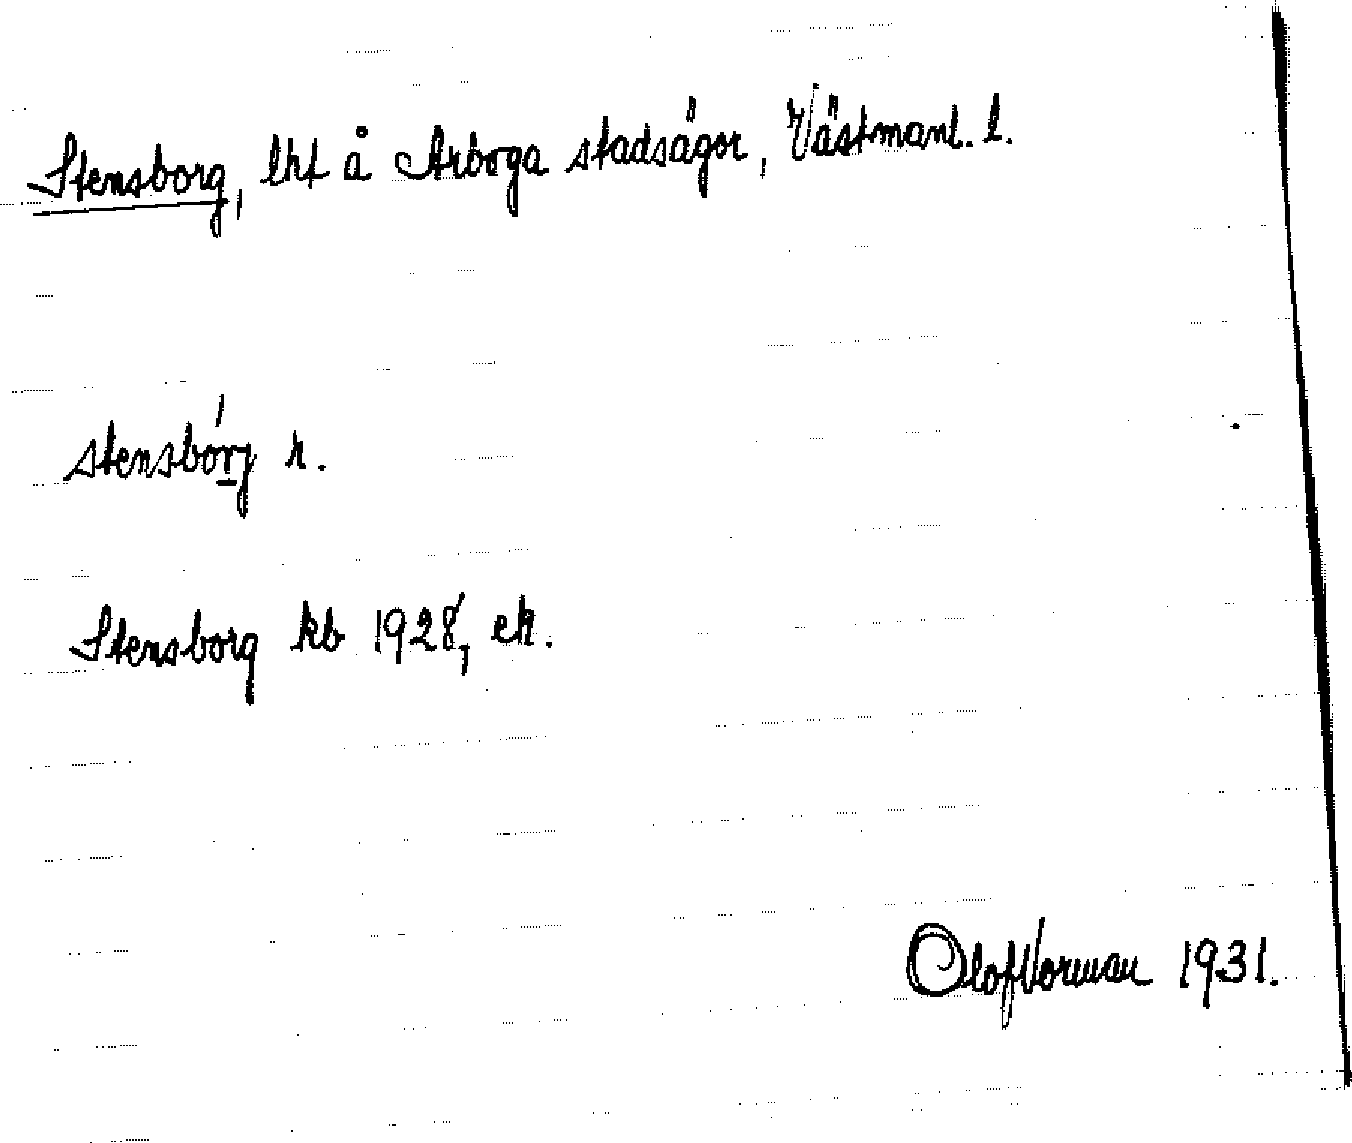 Stensborg, lht å Arboga stadsägor, Västmanl. l.
stensbórj r.
Stensborg kb 1928, ek.
Olof Vorman 1931.